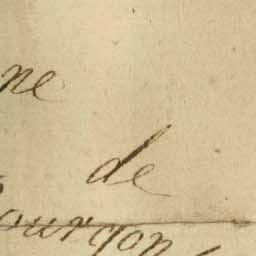 ne
de
ourgon